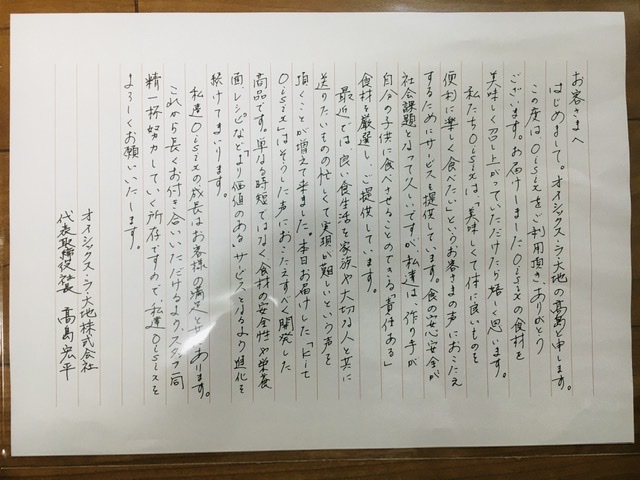 お客さまへ
はじめまして。オイシックス・ラ・大地の高島と申します。
この度はOisixをご利用頂き、ありがとう
ございます。お届けしましたOisixの食材を
美味しく召し上がっていただけたら嬉しく思います。
私たちOisixは、「美味しくて体に良いものを
便利に楽しく食べたい」というお客さまの声におこたえ
するためにサービスを提供しています。食の安心、安全が
社会課題となって久しいですが、私達は、作り手が
自分の子供に食べさせることのできる「責任ある」
食材を厳選し、ご提供しています。
最近では良い食生活を家族や大切な人と共に
送りたいものの忙しくて実現が難しいという声を
頂くことが増えて来ました。本日お届けした「Kit
Oisix」はそうした声におこたえすべく開発した
商品です。単なる時短ではなく、食材の安全性や栄養
面、レシピなど、「より価値のある」サービスとなるよう進化を
続けてまいります。
私達Oisixの成長はお客様の満足と共にあります。
これから長くお付き合いいただけるよう、スタッフ一同
精一杯努力していく所存ですので、私達Oisixを
よろしくお願いいたします。
オイシックス・ラ・大地株式会社
代表取締役社長 高島宏平